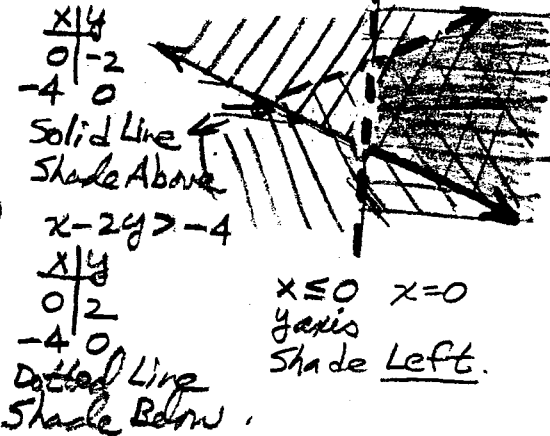 x | y
0 | -2
-4 | 0
Solid Line
Shade Above
x-2y>-4
x | y
0 | 2
-4 | 0
Dotted Line
Shade Below.
x≤0 x=0
y axis
Shade Left.